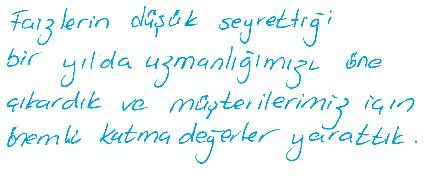 Faizlerin düşük seyrettiği
bir yılda uzmanlığımızı öne
çıkardık ve müşterilerimiz için
önemli katma değerler yarattık.